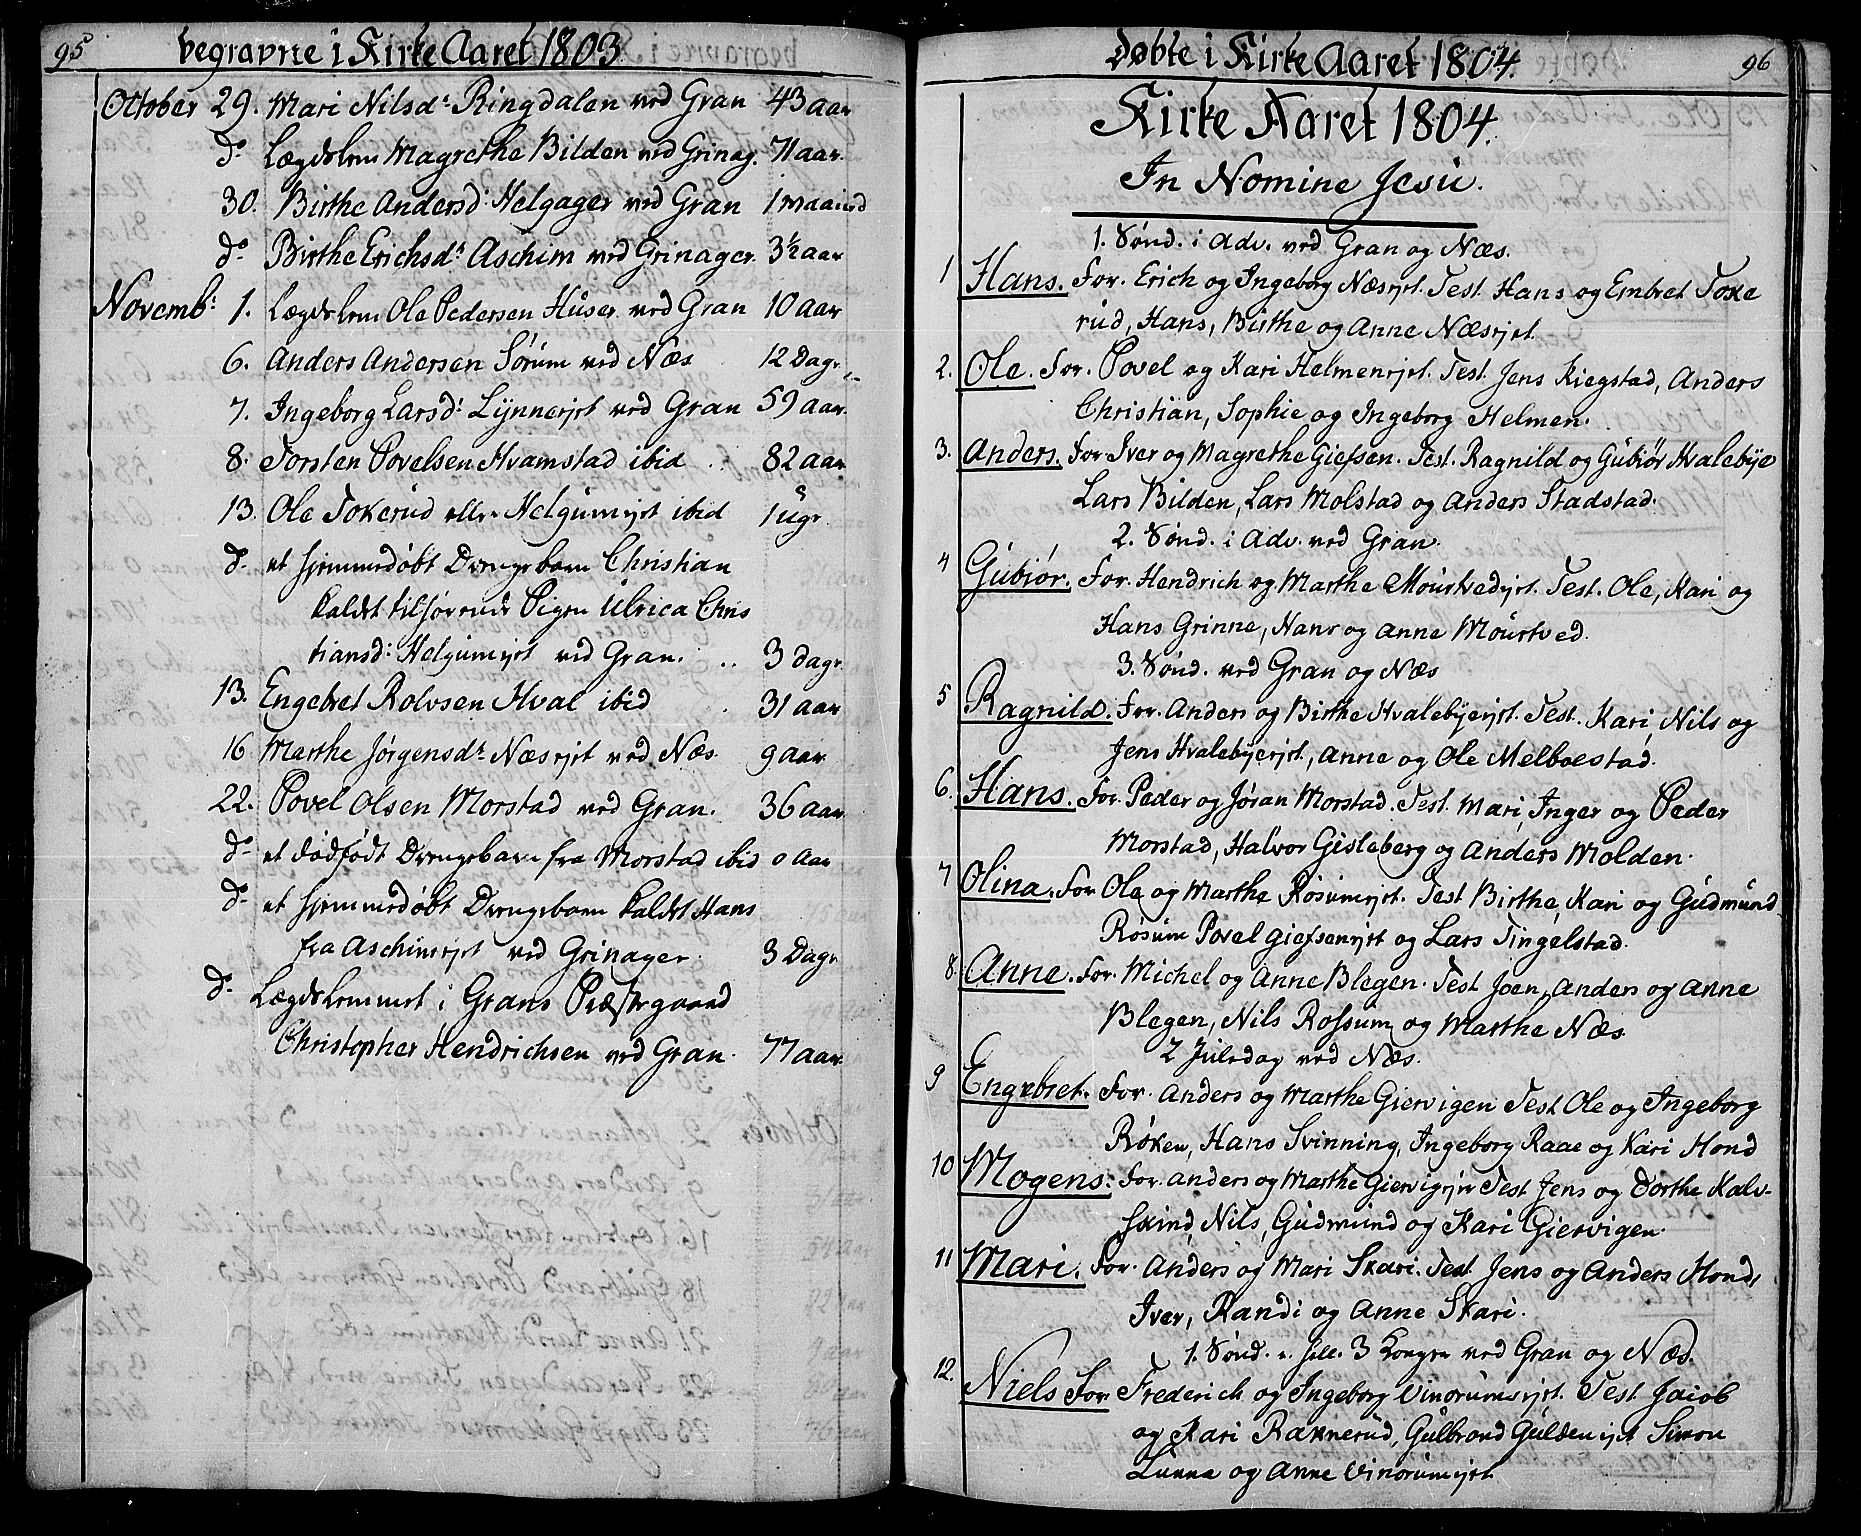 95
begravne i Kirke Aaret 1803.
October 29. Mari Nilsd: Ringdalen ved Gran 43 aar
d- Lægdslem Magrethe Bilden ved Grinag. 71 aar.
30. Birthe Andersd: Helgager ved Gran 1 maaned
d- Birthe Erichsd: Aschim ved Grinager. 3½ aar
Novemb: 1. Lægdslem Ole Pedersen Huser ved Gran 10 aar
6. Anders Andersen Sørum ved Næs 12 Dage
7. Ingeborg Larsd: Lynnerejet ved Gran 59 aar.
8. Torsten Povelsen Hvamstad ibid .. 82 aar
13. Ole Tokerud eller Helgumejet ibid 1 uge
d- et hjemmedøbt Drengebarn Christian
kaldet tilhørende Pigen Ulrica Chris
tiansd: Helgumejet ved Gran. .. 3 dage
13. Engebret Rolvsen Hval ibid . 31 aar
16 Marthe Jørgensd: Næsejet ved Næs. 9 aar
22. Povel Olsen Morstad ved Gran. 36 aar
d- et dødfødt Drengebarn fra Morstad ibid 0 aar
d- et hjemmedøbt Drengebarn kaldet Hans
fra Aschimejet ved Grinager. 3 Dage
d- Lægdslemmet i Grans Præstegaard
Christopher Hendrichsen ved Gran. 77 aar.
Døbte i Kirke Aaret 1804. 96
Kirke Aaret 1804.
In Nomine Jesu.
1. Sønd. i Adv. ved Gran og Næs.
1 Hans. For. Erich og Ingeborg Næsejet. Test. Hans og Embret Toke
rud, Hans, Birthe og Anne Næsejet.
2. Ole. For. Povel og Kari Helmenejet. Test. Jens Kiegstad, Anders
Christian, Sophie og Ingeborg Helmen.
3. Anders. For Iver og Magrethe Giefsen. Test. Ragnild og Gubiør Hvalebye
Lars Bilden, Lars Molstad og Anders Stadstad.
2. Sønd. i Adv. ved Gran.
4 Gubiør. For. Hendrich og Marthe Mourtvedejet. Test. Ole, Kari og
Hans Grinne, Hans og Anne Mourtved.
3. Sønd. ved Gran og Næs
5 Ragnild. For. Anders og Birthe Hvalebyeejet. Test. Kari, Nils og
Jens Hvalebyeejet, Anne og Ole Melboestad.
6. Hans. For. Peder og Jøran Morstad. Test. Mari, Inger og Peder
Morstad, Halvor Gisleberg og Anders Molden.
7 Olina. For Ole og Marthe Røsumejet. Test Birthe, Kari og Gudmund
Røsum Povel Giefsenejet og Lars Tingelstad.
8. Anne. For. Michel og Anne Blegen. Test Joen, Anders og Anne
Blegen, Nils Rossum og Marthe Næs
2 Juledag ved Næs.
9 Engebret. For. Anders og Marthe Giervigen Test Ole og Ingeborg
Røken, Hans Svinning, Ingeborg Raae og Kari Hond
10 Mogens. For. Anders og Marthe Giervigejet Test Jens og Dorthe Kalv-
skind, Nils, Gudmund og Kari Giervigen.
11 Mari. For. Anders og Mari Skari. Test Jens og Anders Hond,
Iver, Randi og Anne Skari.
1. Sønd. a. hell. 3 Konger ved Gran og Næs.
12. Niels For Frederich og Ingeborg Vinorumsejet. Test Jacob
og Kari Raknerud, Gulbrand Guldenejet Simon
Lunna og Anne Vinorumejet